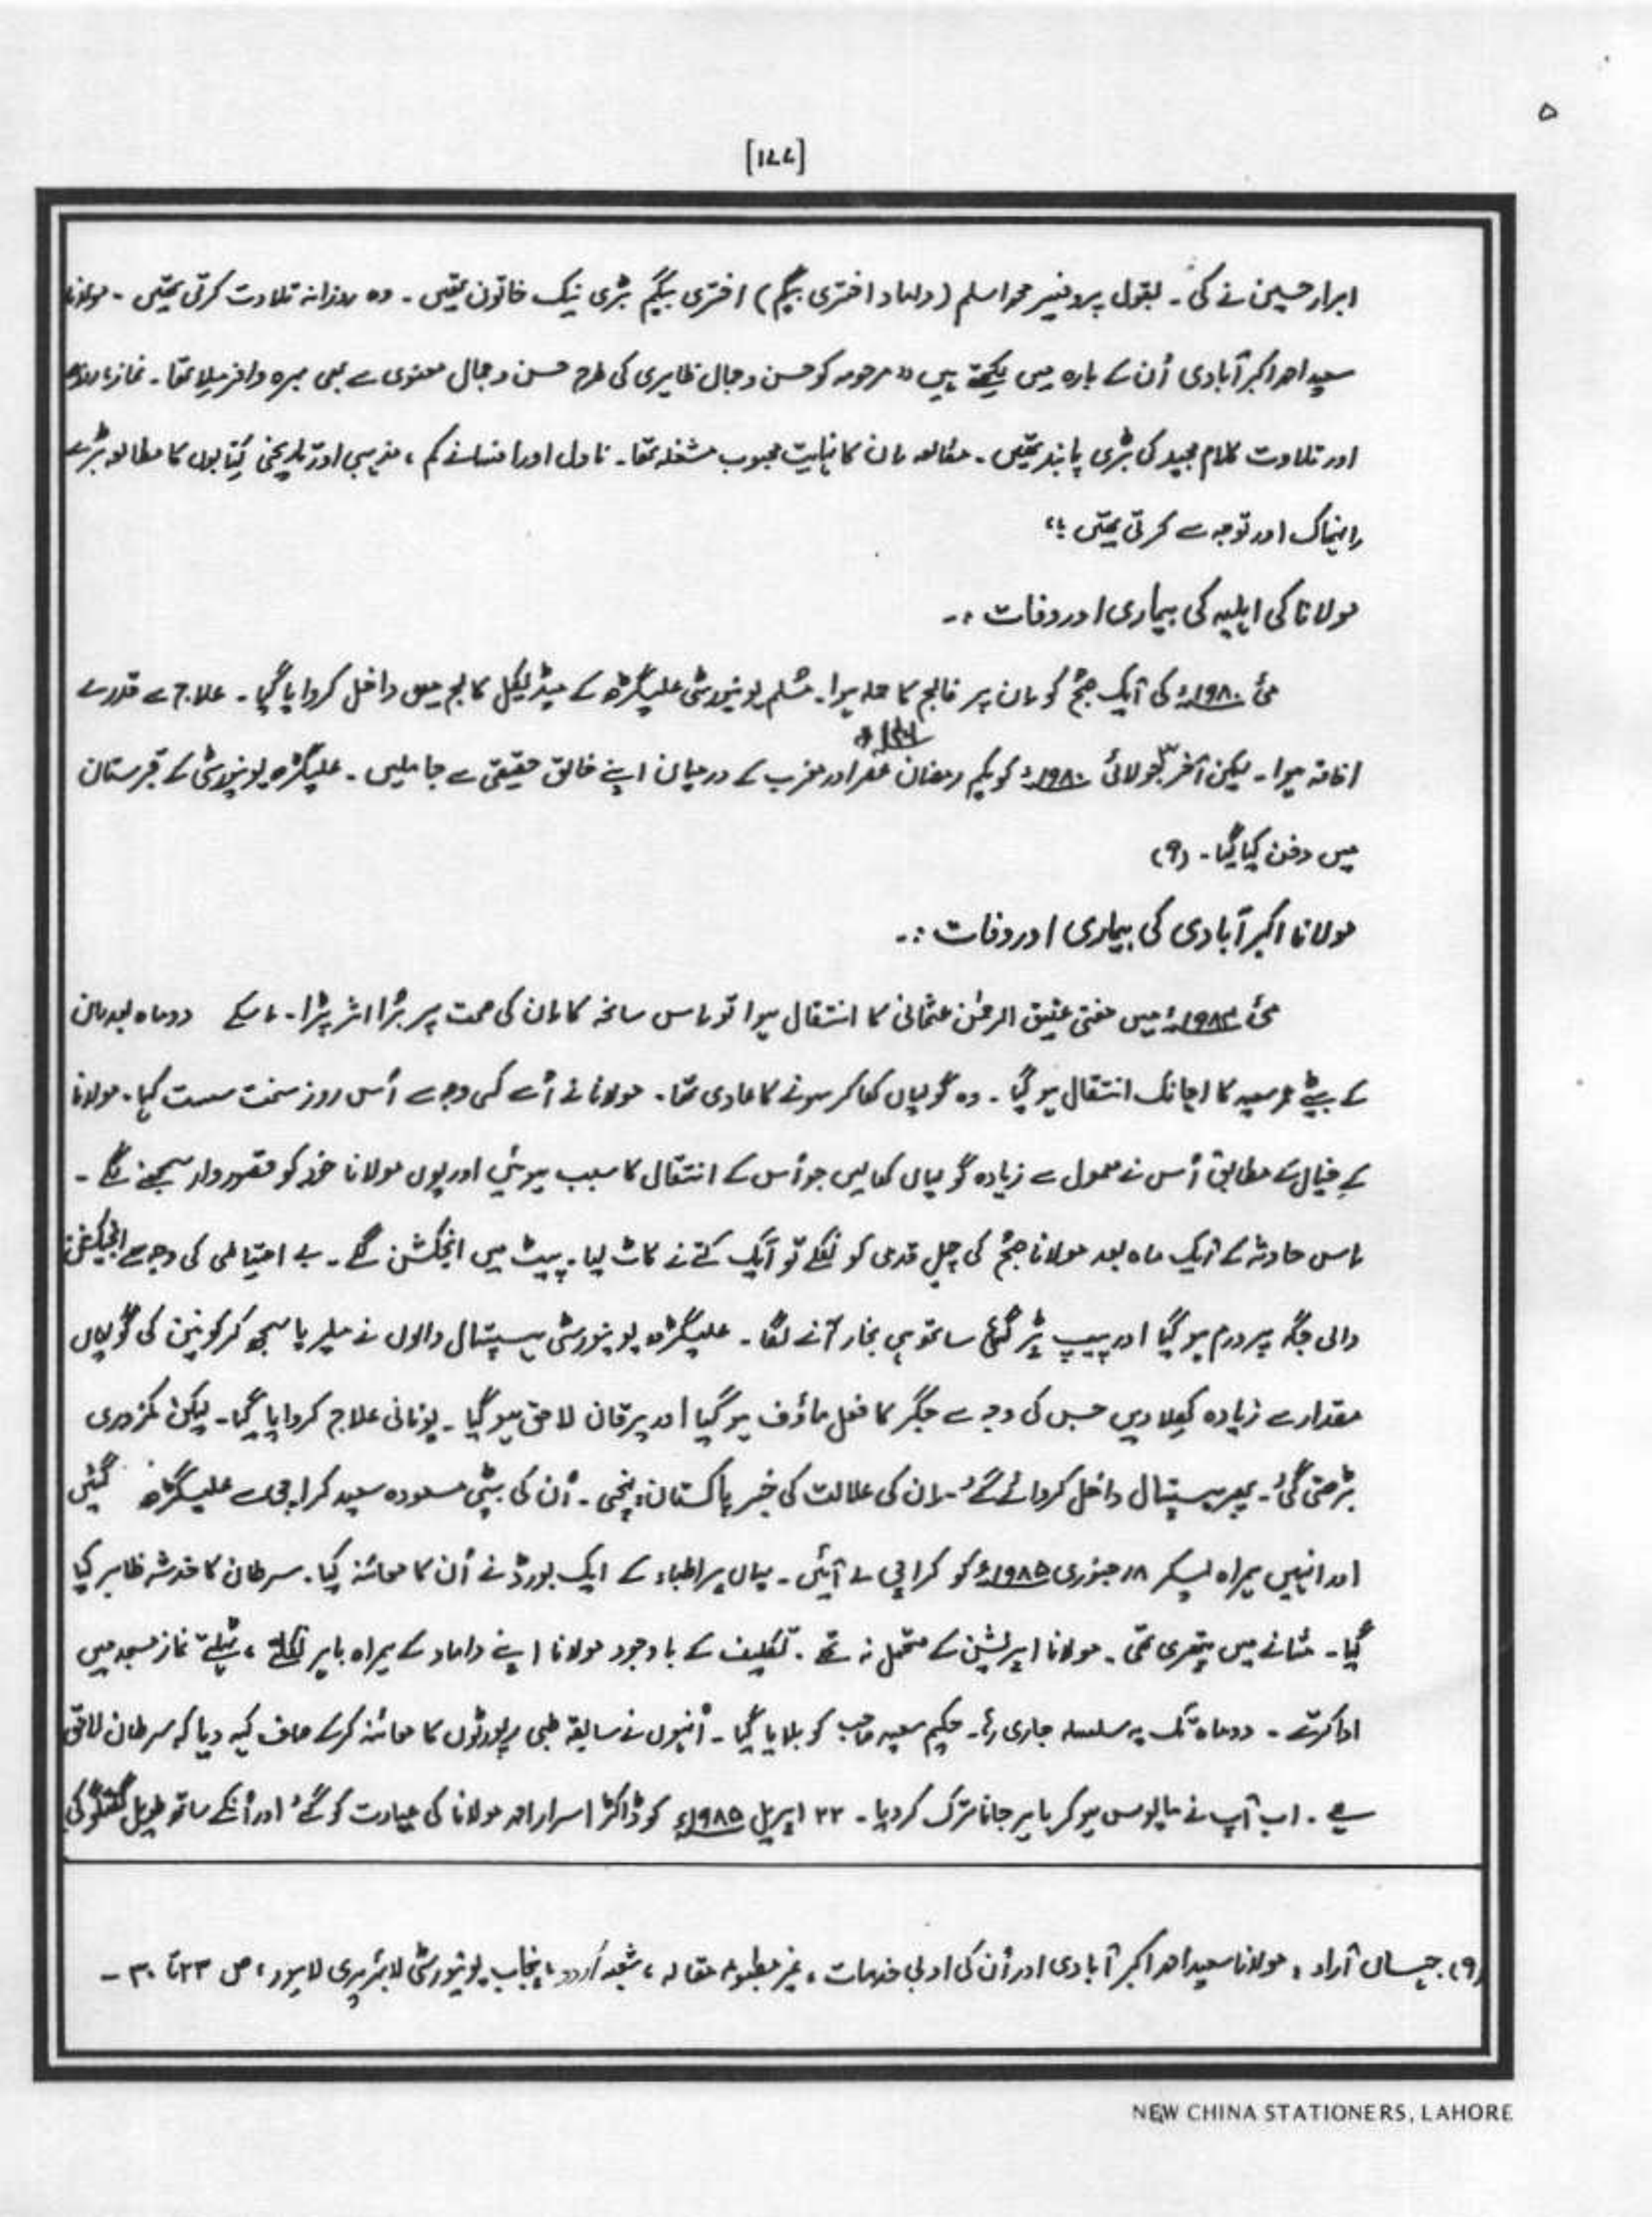 ۵
[۱۷۷]
ابرار حسین نے کی۔ بقول پروفیسر محمد اسلم (داماد اختری بیگم) اختری بیگم بڑی نیک خاتون تھیں۔ وہ روزانہ تلاوت کرتی تھیں۔ مولانا
سعید احمد اکبر آبادی اُن کے بارہ میں لکھتے ہیں "مرحومہ کو حسن و جمال ظاہری کی طرح حسن و جمال معنوی سے بھی بہرہ وافر ملا تھا۔ نماز، روزہ
اور تلاوت کلام مجید کی بڑی پابند تھیں۔ مطالعہ ان کا نہایت محبوب مشغلہ تھا۔ ناول اور افسانے کم، مذہبی اور تاریخی کتابوں کا مطالعہ بڑے
انہماک اور توجہ سے کرتی تھیں۔"
مولانا کی اہلیہ کی بیماری اور وفات :۔
مئی ۱۹۸۰ء کی ایک صبح کو ان پر فالج کا حملہ ہوا۔ مسلم یونیورسٹی علیگڑھ کے میڈیکل کالج میں داخل کروایا گیا۔ علاج سے قدرے
افاقہ ہوا۔ لیکن آخر جولائی ۱۹۸۰ء کو یکم رمضان عصر اور مغرب کے درمیان اپنے خالق حقیقی سے جا ملیں۔ علیگڑھ یونیورسٹی کے قبرستان
میں دفن کیا گیا۔ (۹)
مولانا اکبر آبادی کی بیماری اور وفات :۔
مئی ۱۹۸۴ء میں مفتی عتیق الرحمٰن عثمانی کا انتقال ہوا تو اس سانحہ کا ان کی صحت پر بڑا اثر پڑا۔ اسکے دو ماہ بعد ان
کے بیٹے عمر سعید کا اچانک انتقال ہو گیا۔ وہ گولیاں کھا کر سونے کا عادی تھا۔ مولانا نے اُسے کسی وجہ سے اُس روز سخت سست کہا۔ مولانا
کے خیال کے مطابق اُس نے معمول سے زیادہ گولیاں کھا لیں جو اُس کے انتقال کا سبب ہوئیں اور یوں مولانا خود کو قصوروار سمجھنے لگے۔
اس حادثہ کے ایک ماہ بعد مولانا صبح کی چہل قدمی کو نکلے تو ایک کتے نے کاٹ لیا۔ پیٹ میں انجکشن لگے۔ بے احتیاطی کی وجہ سے انجیکشن
والی جگہ پر ورم ہو گیا اور پیپ پڑ گئی ساتھ ہی بخار آنے لگا۔ علیگڑھ یونیورسٹی ہسپتال والوں نے ملیریا سمجھ کر کونین کی گولیاں
مقدار سے زیادہ کھلا دیں جس کی وجہ سے جگر کا فعل ماؤف ہو گیا اور یرقان لاحق ہو گیا۔ یونانی علاج کروایا گیا۔ لیکن کمزوری
بڑھتی گئی۔ پھر ہسپتال داخل کروائے گئے۔ ان کی علالت کی خبر پاکستان پہنچی۔ اُن کی بیٹی مسعودہ سعید کراچی سے علیگڑھ گئیں
اور انہیں ہمراہ لیکر ۱۸ جنوری ۱۹۸۵ء کو کراچی لے آئیں۔ یہاں پر اطباء کے ایک بورڈ نے اُن کا معائنہ کیا۔ سرطان کا خدشہ ظاہر کیا
گیا۔ مثانے میں پتھری تھی۔ مولانا اپریشن کے متحمل نہ تھے۔ تکلیف کے باوجود مولانا اپنے داماد کے ہمراہ باہر نکلتے، ٹہلتے نماز مسجد میں
ادا کرتے۔ دو ماہ تک یہ سلسلہ جاری رہا۔ حکیم سعید صاحب کو بلایا گیا۔ اُنہوں نے سابقہ طبی رپورٹوں کا معائنہ کر کے صاف کہہ دیا کہ سرطان لاحق
ہے۔ اب آپ نے مایوس ہو کر باہر جانا ترک کر دیا۔ ۲۲ اپریل ۱۹۸۵ء کو ڈاکٹر اسرار احمد مولانا کی عیادت کو گئے اور اُنکے ساتھ طویل گفتگو کی
(۹) آراء، مولانا سعید احمد اکبر آبادی اور اُن کی ادبی خدمات، غیر مطبوعہ مقالہ، شعبہ اُردو، پنجاب یونیورسٹی لائبریری لاہور، ص ۲۳ تا ۳۰۔
NEW CHINA STATIONERS, LAHORE